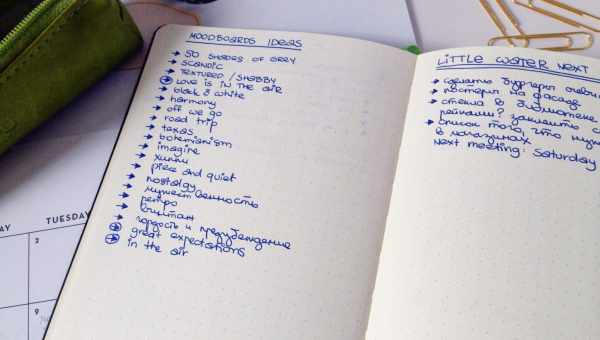 MOODBOARDS IDEAS
→ 50 SHADES OF GREY
→ SCANDIC
→ TEXTURED / SHABBY
→ LOVE IS IN THE AIR
→ black & white
→ harmony
→ off we go
→ road trip
→ texas
→ bohemianism
→ imagine
→ хиппи
→ piece and quiet
→ nostalgy
→ мужественность
→ ретро
→ гордость и предубеждение
→ great expectations
in the air
LITTLE WATER NEXT
→ сделать
→ постеры на фасаде
→ стена в библиотеке
рейками? заклеить
→ список того, что
в магазинах
Next meeting: Saturday
AY
TUESDAY
2
9